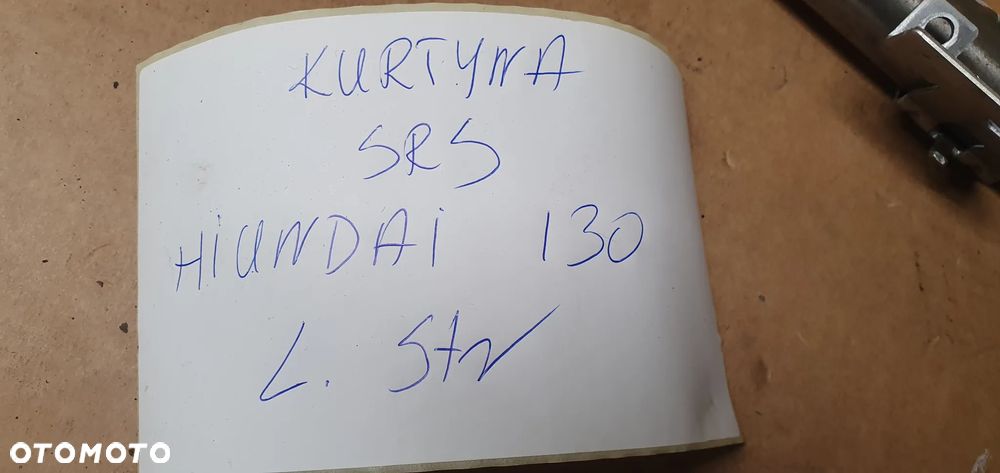 KURTYNA
SRS
HiUNDAi 130
L. Str
OTOMOTO